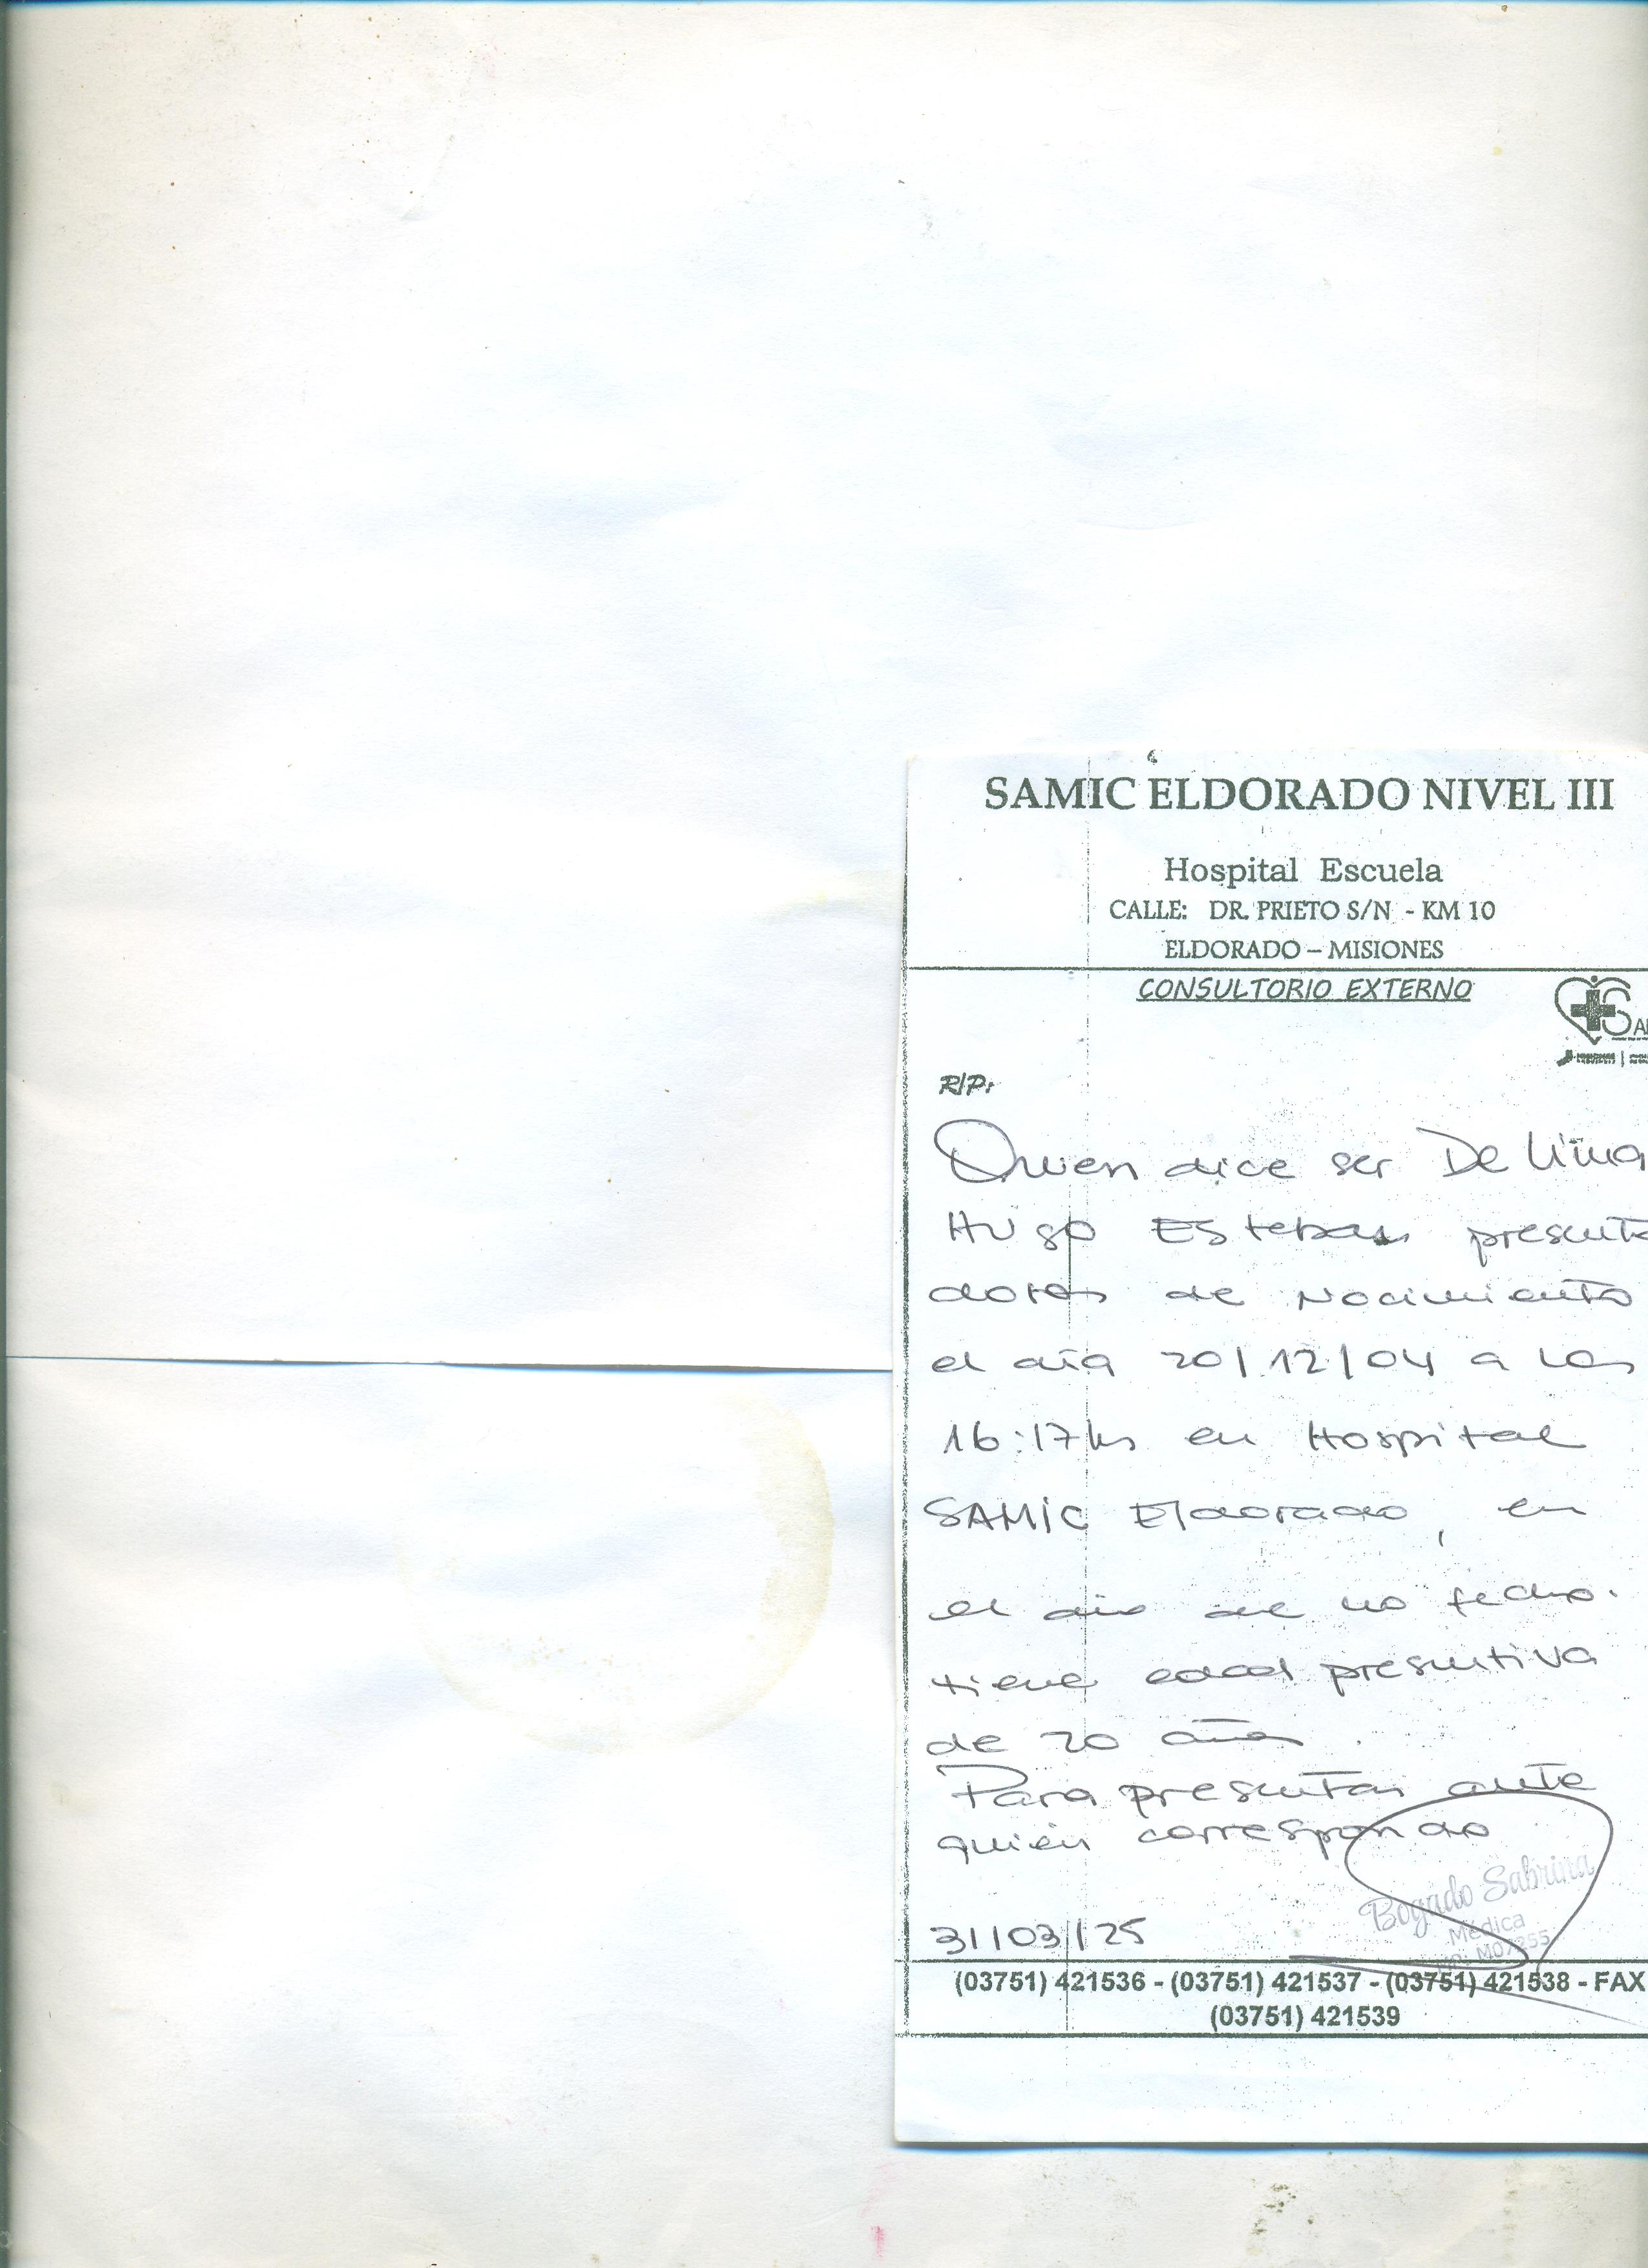 SAMIC ELDORADO NIVEL III
Hospital Escuela
CALLE: DR. PRIETO S/N - KM 10
ELDORADO – MISIONES
CONSULTORIO EXTERNO
R/P:
Quien dice ser De Lima
Hugo Esteban presenta
datos de Nacimiento
el día 20/12/04 a las
16:17hs en Hospital
SAMIC Eldorado, en
el día de la fecha.
tiene edad presuntiva
de 20 años.
Para presentar ante
quien corresponda
Bogado Sabrina
Médica
M07255
31/03/25
(03751) 421536 - (03751) 421537 - (03751) 421538 - FAX
(03751) 421539